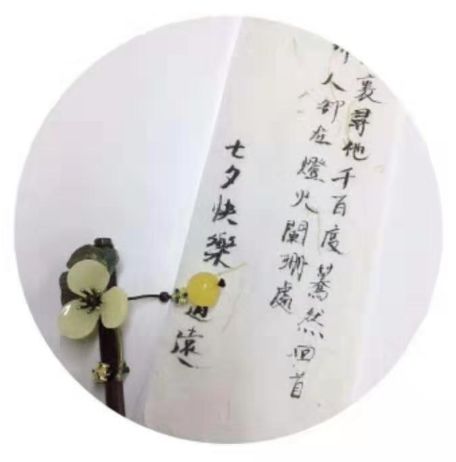 裏尋他千百度驀然回首
人卻在燈火闌珊處
七夕快樂
遠